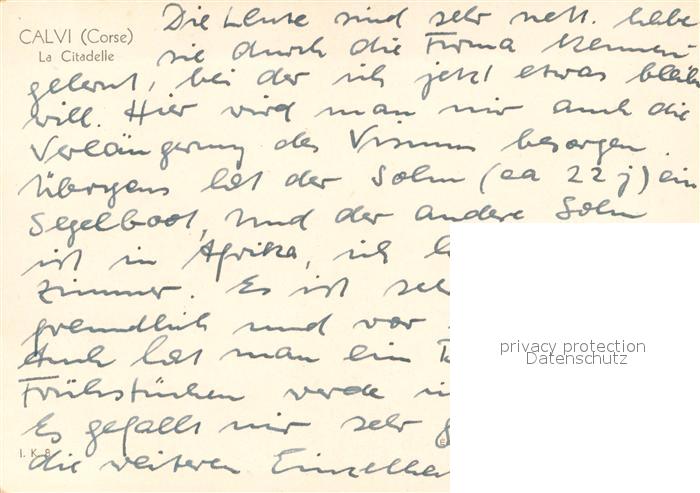 CALVI (Corse)
La Citadelle
Die Leute sind sehr nett. habe
sie durch die Firma kennen-
gelernt, bei der ich jetzt etwas bleiben
will. Hier wird man mir auch die
Verlängerung des Visums besorgen.
Übrigens hat der Sohn (ca 22 j) ein
Segelboot, und der andere Sohn
ist in Afrika, ich
Zimmer. Es ist
freundlich und vor
Auch hat man ein
Frühstücken werde
Es gefällt mir sehr
die weiteren
I. K. 8
privacy protection
Datenschutz